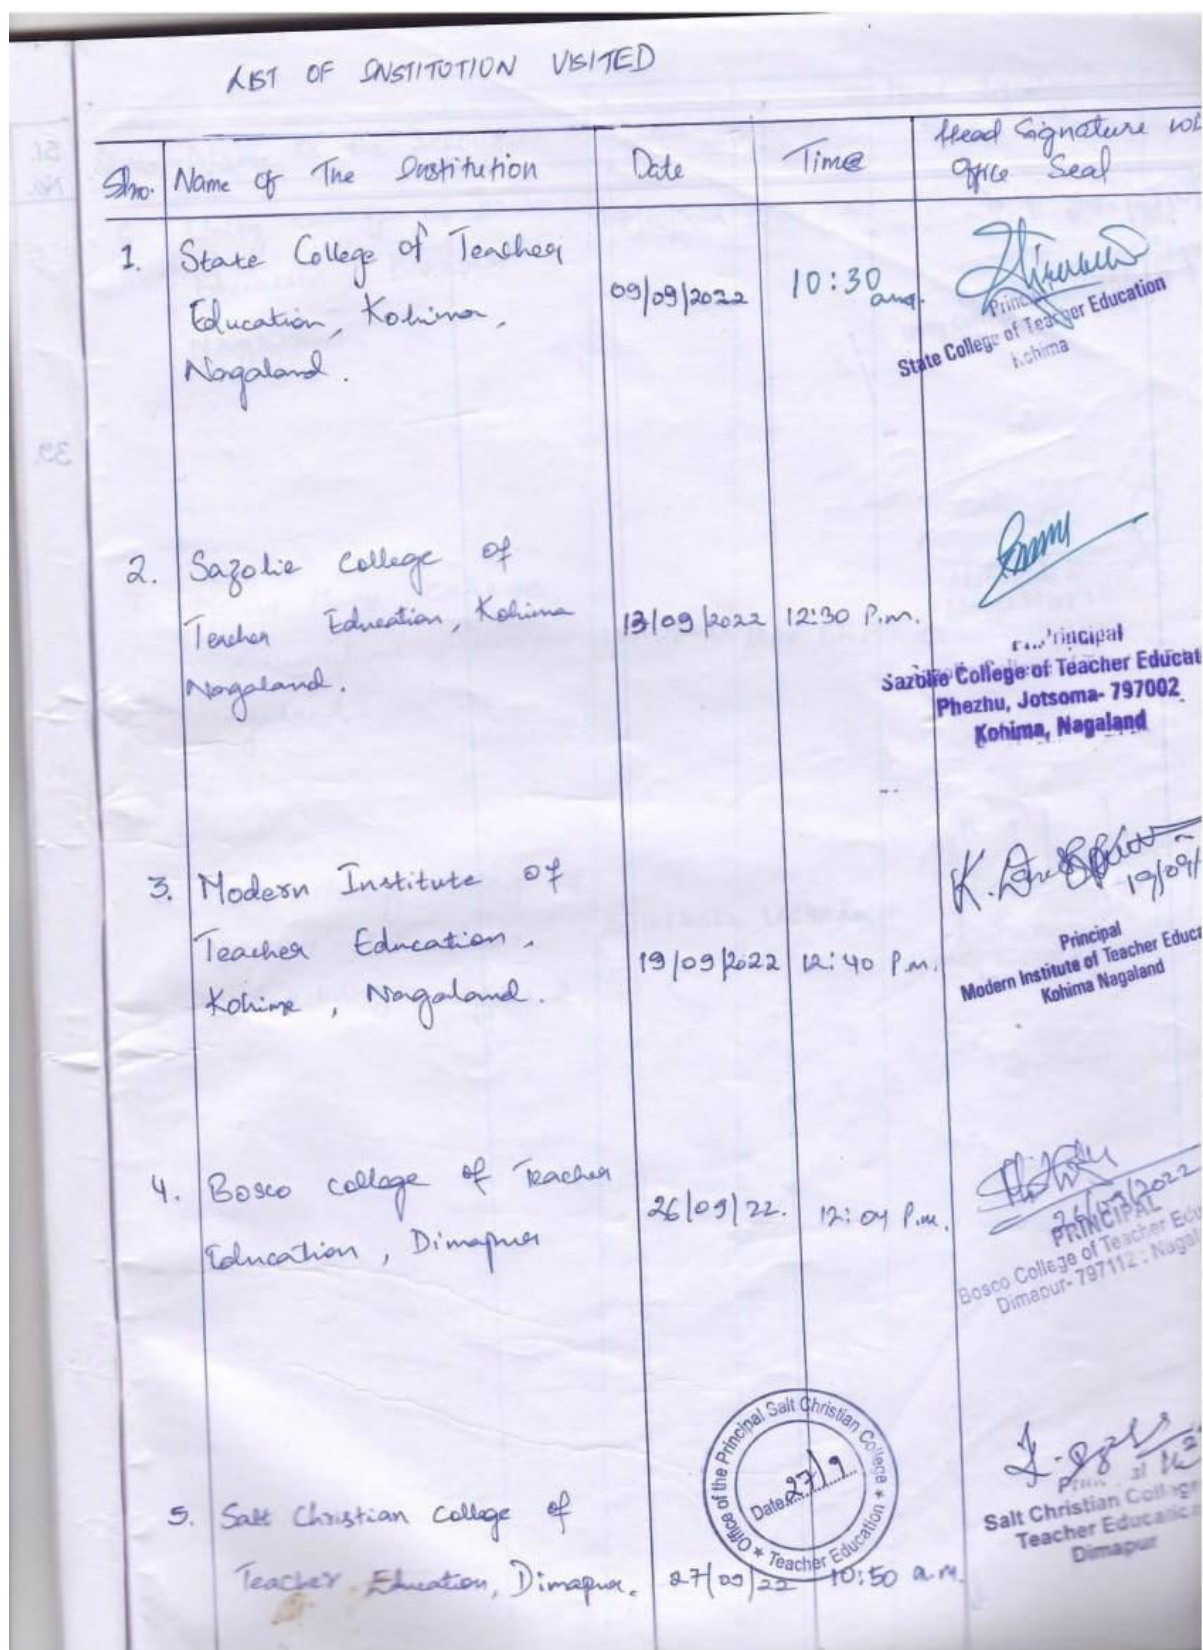 LIST OF INSTITUTION VISITED
Slno. Name of The Institution Date Time Head Signature
Office Seal
1. State College of Teacher
Education, Kohima,
Nagaland.
09/09/2022 10:30 am.
Principal
State College of Teacher Education
Kohima
2. Sazolie College of
Teacher Education, Kohima
Nagaland.
13/09/2022 12:30 P.m.
Principal
Sazolie College of Teacher Educat
Phezhu, Jotsoma- 797002
Kohima, Nagaland
3. Modern Institute of
Teacher Education,
Kohima, Nagaland.
19/09/2022 12:40 P.m.
19/09/
Principal
Modern Institute of Teacher Educa
Kohima Nagaland
4. Bosco College of Teacher
Education, Dimapur
26/09/22. 12:04 P.m.
26/09/2022
PRINCIPAL
Bosco College of Teacher Edu
Dimapur- 797112 : Nagal
5. Salt Christian College of
Teacher Education, Dimapur.
27/09/22 10:50 a.m.
Office of the Principal Salt Christian College
Teacher Education
Date 27/9
Salt Christian College
Teacher Education
Dimapur
39